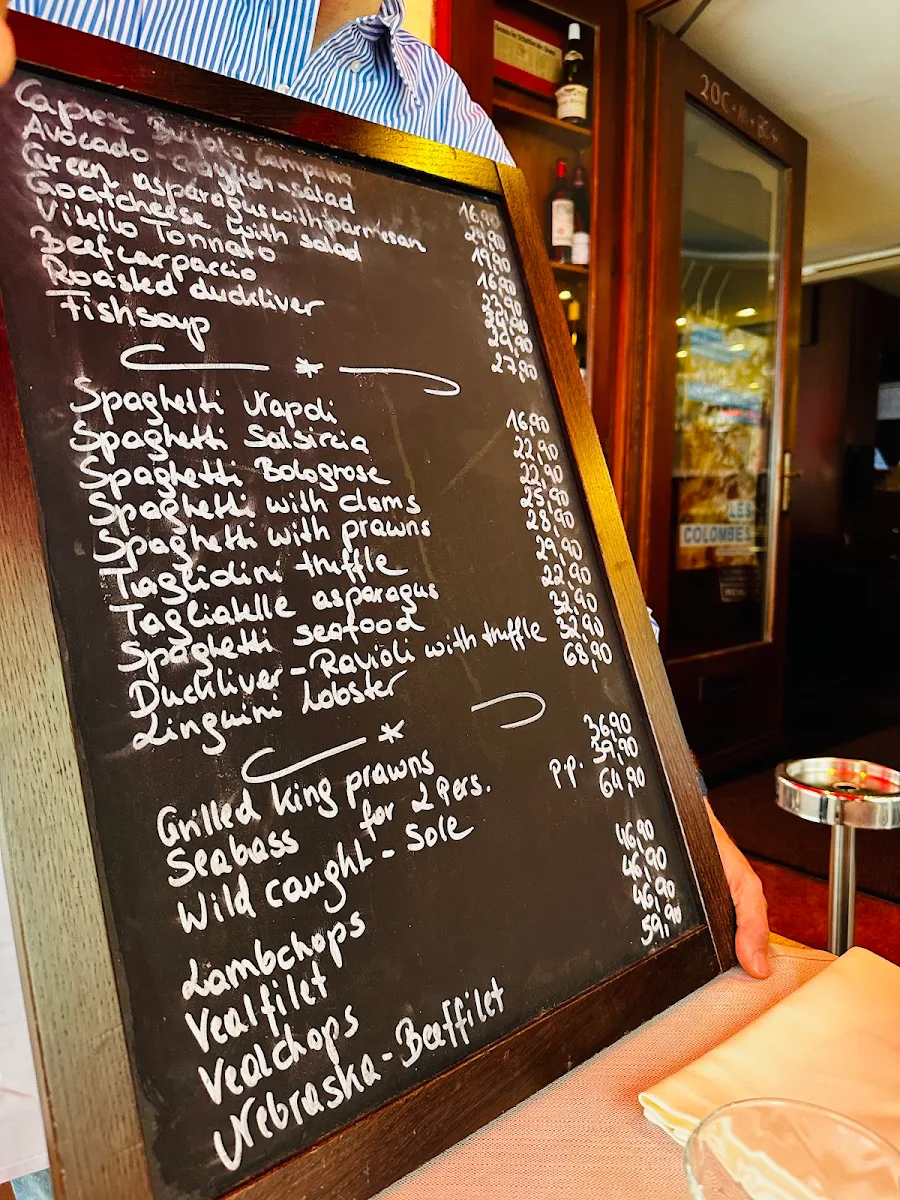 Caprese Bufala Campana 16,90
Avocado-Crayfish-salad 24,90
Green asparagus with parmesan 19,90
Goatcheese with salad 16,90
Vitello Tonnato 23,90
Beefcarpaccio 24,90
Roasted duckliver 29,90
Fishsoup 27,90
Spaghetti Napoli 16,90
Spaghetti Salsiccia 22,90
Spaghetti Bolognese 22,90
Spaghetti with clams 25,90
Spaghetti with prawns 28,90
Tagliolini truffle 29,90
Tagliatelle asparagus 22,90
Spaghetti seafood 32,90
Duckliver-Ravioli with truffle 32,90
Linguini Lobster 68,90
Grilled king prawns 36,90
Seabass for 2 Pers. p.p. 39,90
Wild caught - Sole 64,90
Lambchops 46,90
Vealfilet 46,90
Vealchops 46,90
Nebraska-Beeffilet 59,90
LES
COLOMBES